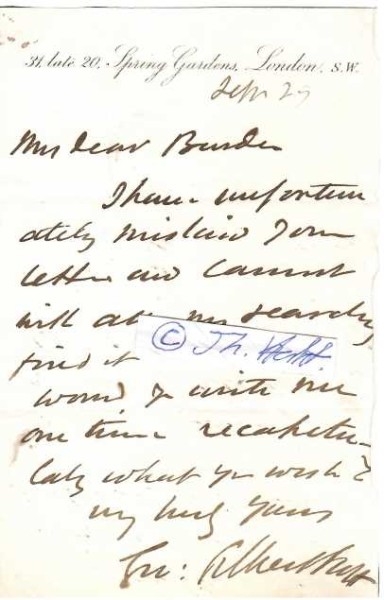 31, late 20, Spring Gardens, London, S.W.
Sep 29
My dear Burder
I have unfortun
ately mislaid your
letter and cannot
with all my searching
© Th.
find it
Would you write me
one time recapitu-
lating what you wish?
Very truly yours
Geo: Gilbert Scott